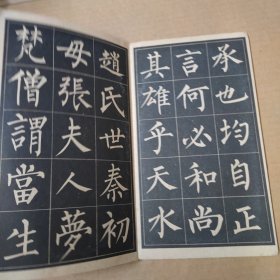 承也均自正
言何必和尚
其雄乎天水
趙氏世秦初
母張夫人夢
梵僧謂當生